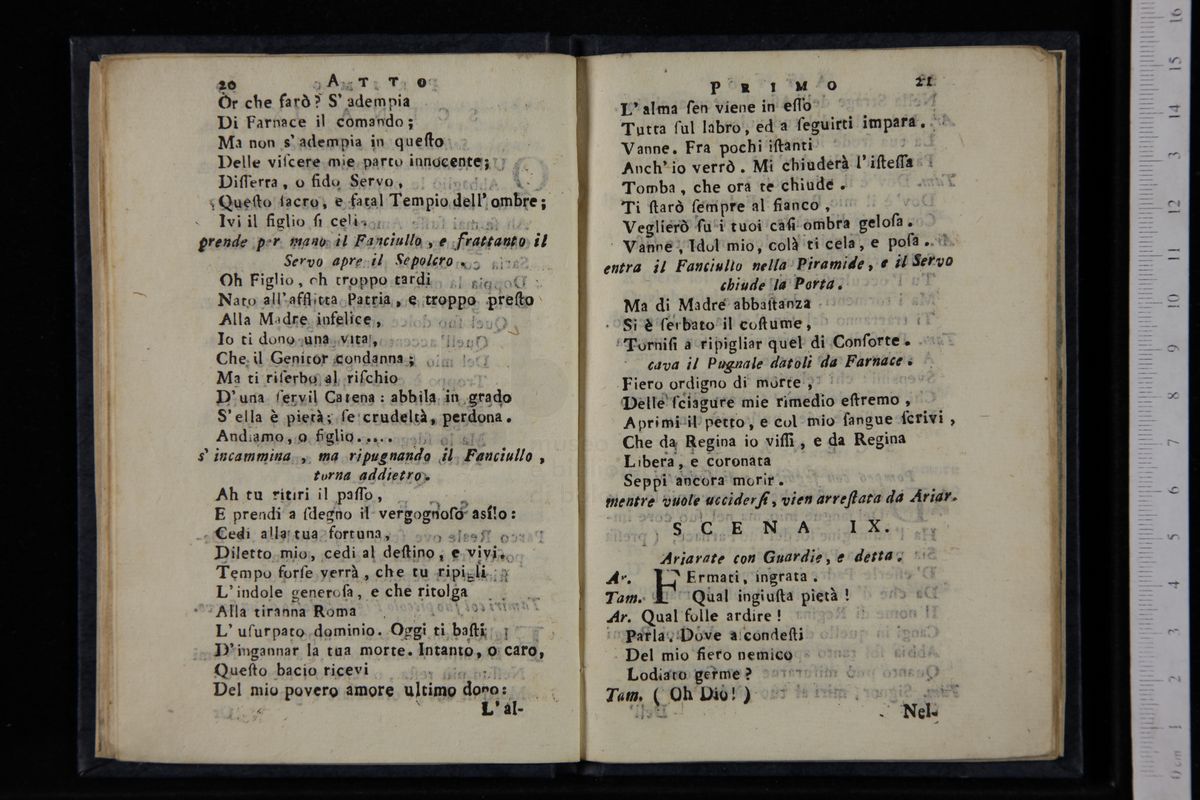 20 ATTO
Or che farò? S' adempia
Di Farnace il comando;
Ma non s' adempia in queſto
Delle viſcere mie parto innocente;
Diſſerra, o fido Servo,
Queſto ſacro, e fatal Tempio dell' ombre;
Ivi il figlio ſi celi.
prende per mano il Fanciullo, e frattanto il
Servo apre il Sepolcro.
Oh Figlio, oh troppo tardi
Nato all' afflitta Patria, e troppo preſto
Alla Madre infelice,
Io ti dono una vita,
Che il Genitor condanna;
Ma ti riſerbo al riſchio
D' una ſervil Catena: abbila in grado
S' ella è pietà; ſe crudeltà, perdona.
Andiamo, o figlio.....
s' incammina, ma ripugnando il Fanciullo,
torna addietro.
Ah tu ritiri il paſſo,
E prendi a ſdegno il vergognoſo aſilo:
Cedi alla tua fortuna,
Diletto mio, cedi al deſtino, e vivi.
Tempo forſe verrà, che tu ripigli
L' indole generoſa, e che ritolga
Alla tiranna Roma
L' uſurpato dominio. Oggi ti baſti
D' ingannar la tua morte. Intanto, o caro,
Queſto bacio ricevi
Del mio povero amore ultimo dono:
L' al-
PRIMO 21
L' alma ſen viene in eſſo
Tutta ſul labro, ed a ſeguirti impara.
Vanne. Fra pochi iſtanti
Anch' io verrò. Mi chiuderà l' iſteſſa
Tomba, che ora te chiude.
Ti ſtarò ſempre al fianco,
Veglierò ſu i tuoi caſi ombra geloſa.
Vanne, Idol mio, colà ti cela, e poſa.
entra il Fanciullo nella Piramide, e il Servo
chiude la Porta.
Ma di Madre abbaſtanza
Si è ſerbato il coſtume,
Torniſi a ripigliar quel di Conſorte.
cava il Pugnale datoli da Farnace.
Fiero ordigno di morte,
Delle ſciagure mie rimedio eſtremo,
Aprimi il petto, e col mio ſangue ſcrivi,
Che da Regina io viſſi, e da Regina
Libera, e coronata
Seppi ancora morir.
mentre vuole ucciderſi, vien arreſtata da Ariar.
SCENA IX.
Ariarate con Guardie, e detta.
Ar. FErmati, ingrata.
Tam. Qual ingiuſta pietà!
Ar. Qual folle ardire!
Parla. Dove aſcondeſti
Del mio fiero nemico
L'odiato germe?
Tam. (Oh Dio!)
Nel-